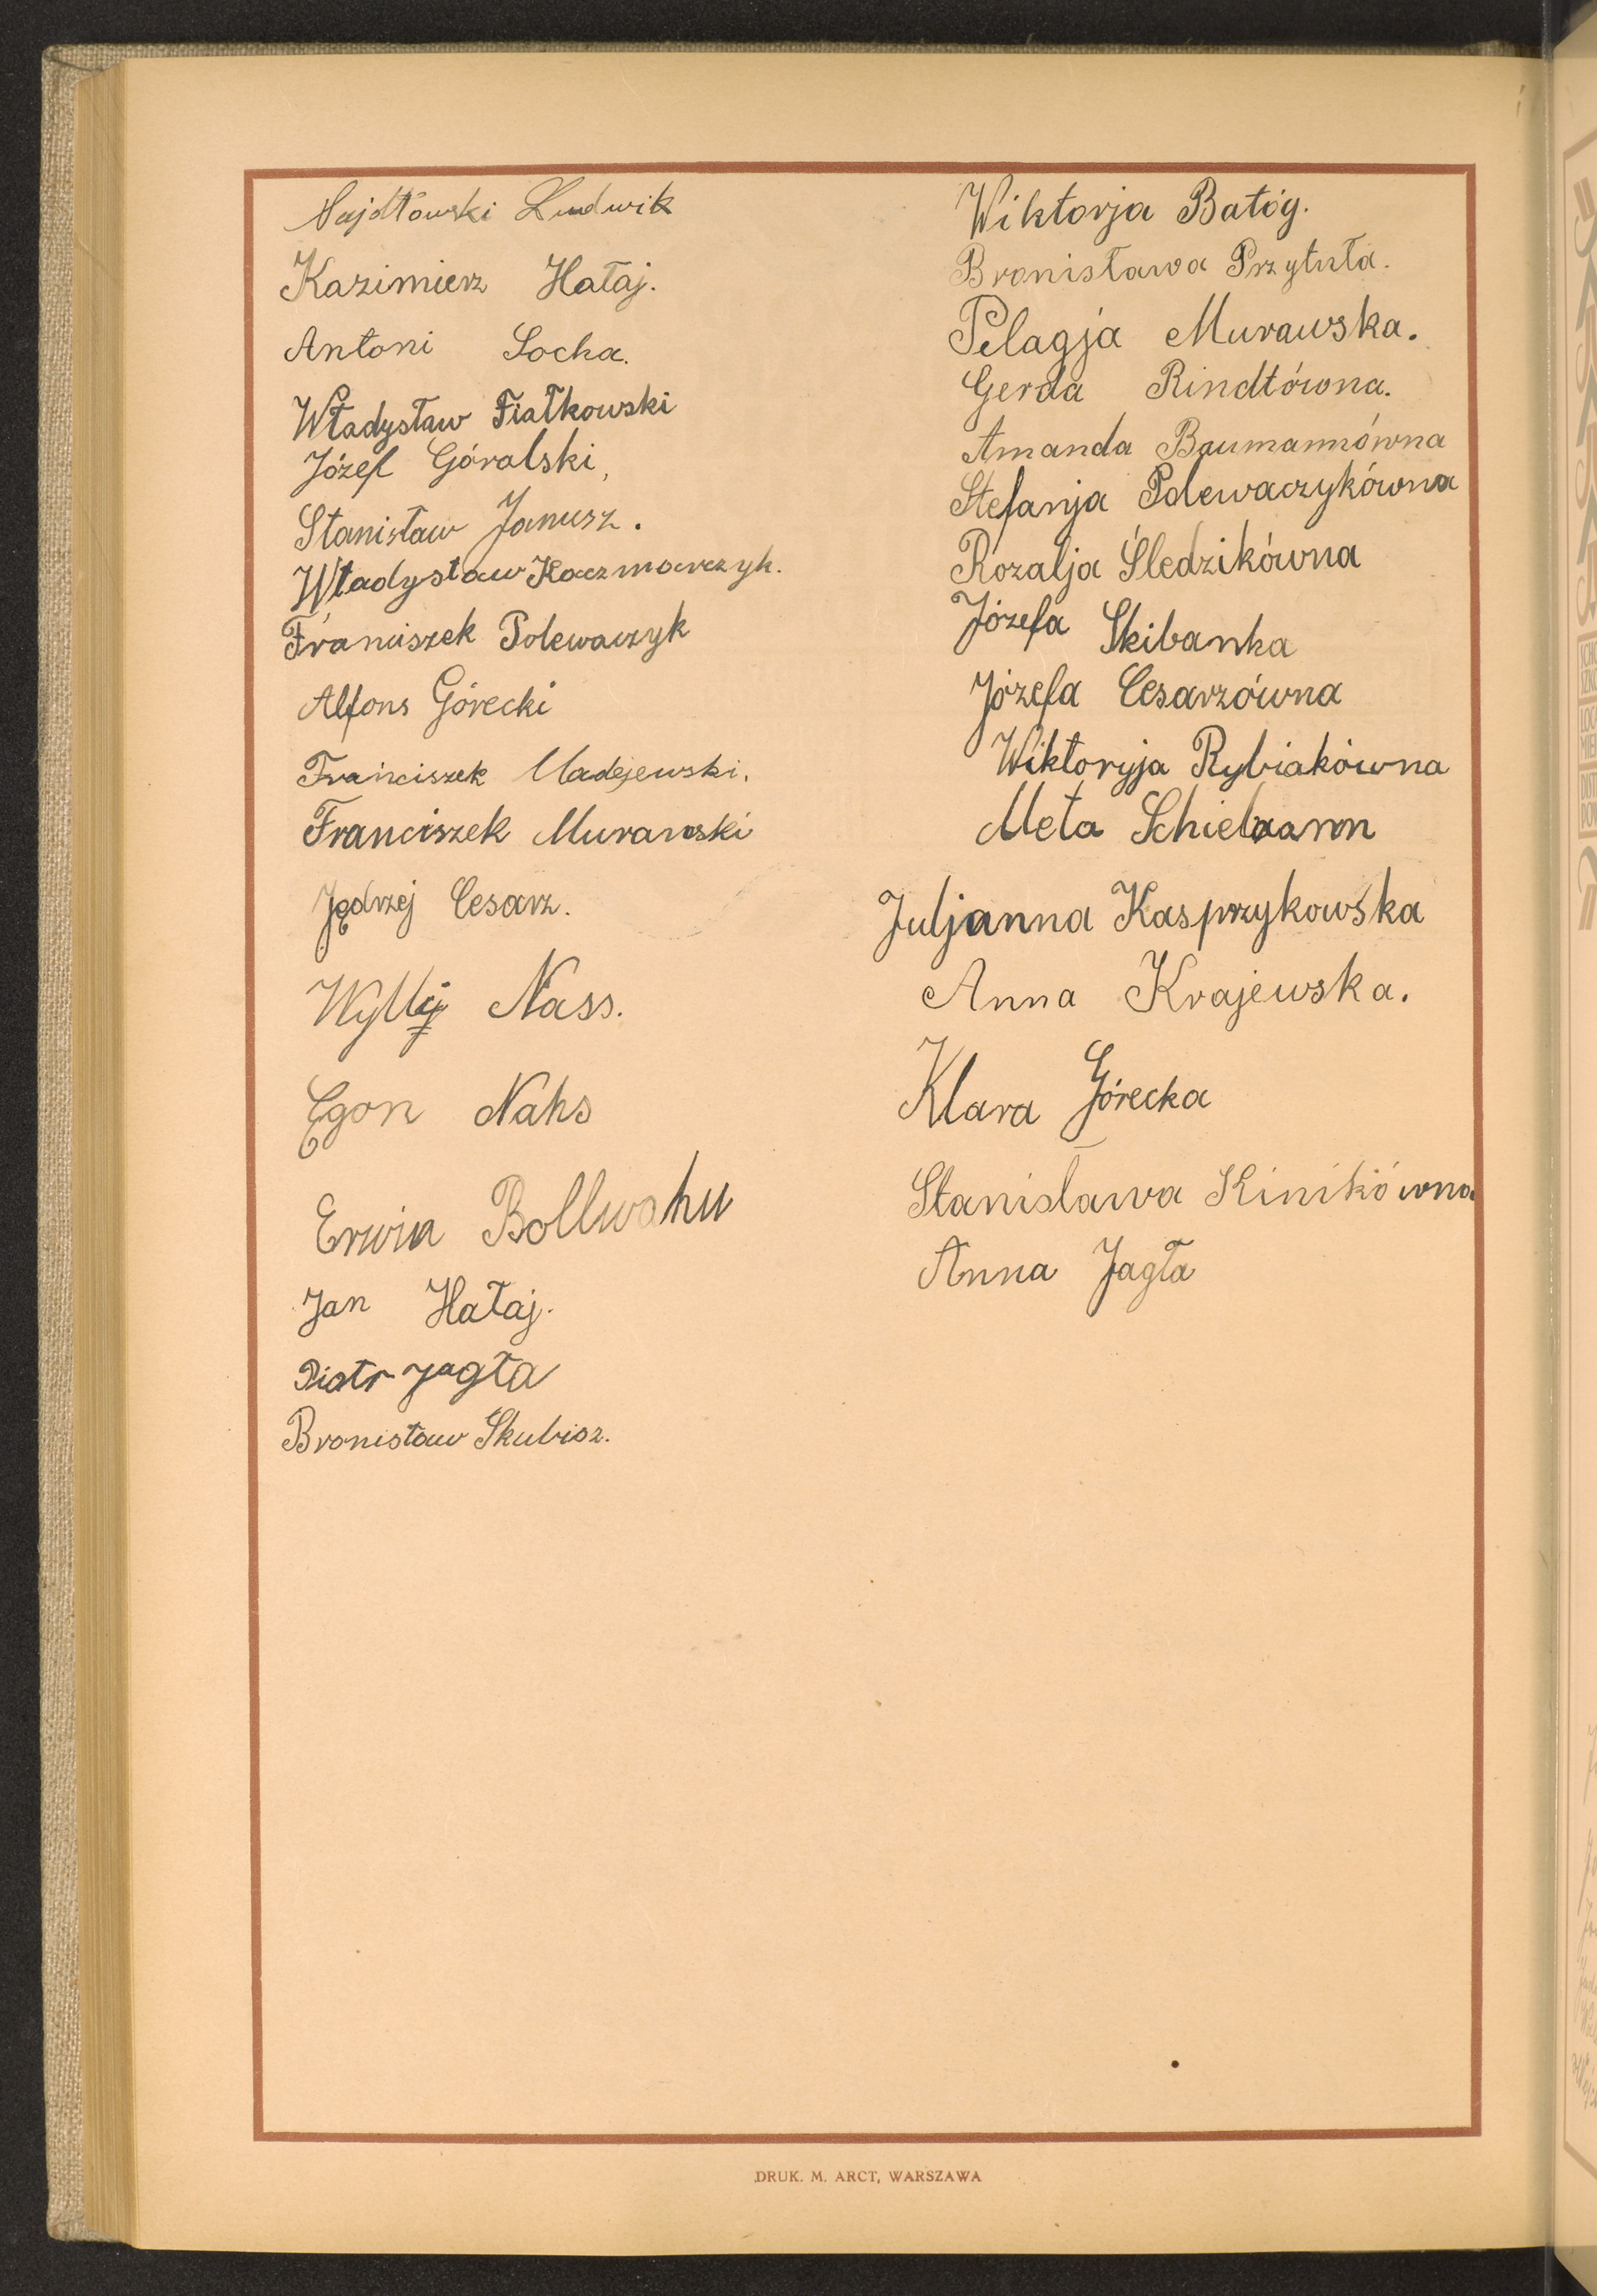 Najdłowski Ludwik
Kazimierz Hałaj.
Antoni Socha.
Władysław Fiałkowski
Józef Góralski,
Stanisław Janusz.
Władysław Kaczmarczyk.
Franciszek Polewaczyk
Alfons Górecki
Franciszek Madejewski.
Franciszek Murawski
Jędrzej Cesarz.
Wylly Nass.
Egon Nahs
Erwin Bollwahn
Jan Hałaj.
Piotr Jagła
Bronisław Skubisz.
Wiktorja Batóg.
Bronisława Przytuła.
Pelagja Murawska.
Gerda Rindtówna.
Amanda Baumannówna
Stefanja Polewaczykówna
Rozalja Śledzikówna
Józefa Skibanka
Józefa Cesarzówna
Wiktoryja Rybiakówna
Meta
Juljanna Kasprzykowska
Anna Krajewska.
Klara Górecka
Stanisława Kinikówna
Anna Jagła
DRUK. M. ARCT, WARSZAWA